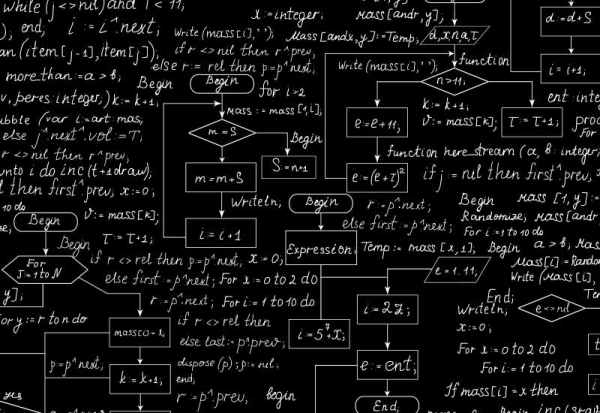 while (j <> nil) and T < 11,
end; i := i^next;
(item[j-1], item[j]);
more than := a > b,
Begin
peres: integer,) k := k+1;
(var i: art: mas;
else j^next^.vol := T;
r <> nil then r^prev,
i do inc (t+1 draw),
then first^.prev; x := 0;
10 do
Begin
v := mass[k];
T := T+1;
Begin
For
J = 1 to N
y];
For y := r to n do
p := p^next;
yes
mass[i]
k := k+1,
x := integer;
Mass [andr, y];
Write (mass[i], ' ');
Mass [andx, y] := Temp,
if r <> rel then r^prev,
else r := rel then p = p^next,
Begin
for i = 2
mass := mass [1, i],
m = S
Begin
S := n+1
m = m + S
Writeln,
i = i + 1
Write (mass[i], ' ');
d, x, n, a, τ
function
n > 11,
e = e + 11;
k := k+1;
v := mass[k];
τ = τ+1;
function here stream (a, b: integer;
e := (e + τ)²
if j = nil then first^.prev,
Begin
r := p^next;
else first = p^next;
Expression;
Temp := mass [x, 1];
Begin
Begin
mass [1, y] :=
Randomize;
Mass [andr
For i = 1 to 10 do
a > b,
Mass[i] := Random
Write (Mass[i],
d := d + S
i = i + 1,
ent: integer
For
if r <> rel then p = p^next,
x := 0;
else first = p^next;
For x := 0 to 2 do
r := p^next;
For i = 1 to 10 do
if r <> rel then
else last := p^prev;
dispose (p); p := nil,
end;
r := p^.prev,
begin
i = 5⁷x;
e = 1..11,
i = 2z,
e := ent;
End,
End;
Writeln,
x := 0;
e <> nil
For x := 0 to 2 do
For i = 1 to 10 do
If mass[i] = x then
Begin inc (stra